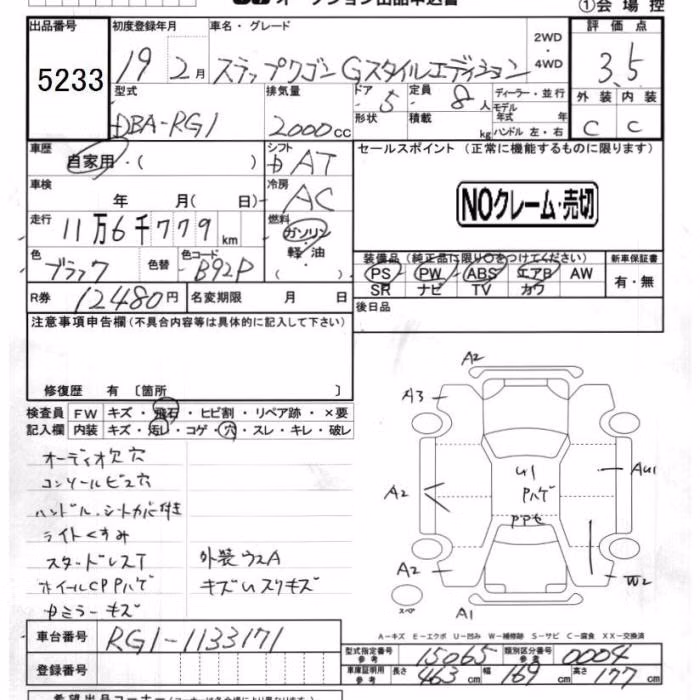 オークション出品申込書
①会場控
出品番号 初度登録年月 車名・グレード 2WD・4WD 評価点
5233 19 2月 ステップワゴン Gスタイルエディション 3.5
型式 排気量 ドア 5 定員 8人 ディーラー・並行 外装 内装
DBA-RG1 2000cc 形状 積載 kg モデル年式 年 ハンドル 左・右 C C
車歴 自家用・( ) シフト AT セールスポイント (正常に機能するものに限ります)
車検 年 月( 日) 冷房 AC
NOクレーム・売切
走行 11万6千779km 燃料 ガソリン 軽・油 ( )
色 ブラック 色替 色コード B92P
装備品 (純正品に限り○をつけてください) 新車保証書
PS PW ABS エアB AW 有・無
SR ナビ TV カワ
R券 12480円 名変期限 月 日 後日品
注意事項申告欄(不具合内容等は具体的に記入して下さい)
修復歴 有 〔箇所 〕
検査員 FW キズ・飛石・ヒビ割・リペア跡・×要
記入欄 内装 キズ・汚レ・コゲ・穴・スレ・キレ・破レ
A2
A3
オーディオ欠穴
コンソールビス穴
U1
Pハゲ
AU1
A2
ハンドル・シートカバー付
ライトくすみ
スタッドレスT 外装ウスA
A2
ホイールCP Pハゲ キズUスリキズ
W2
中ミラーキズ
スペア
A1
A-キズ E-エクボ U-凹み W-補修跡 S-サビ C-腐食 XX-交換済
車台番号 RG1-1133171
型式指定番号 参考 15065 類別区分番号 参考 0004
登録番号
車庫証明用 参考 長さ 463cm 幅 169cm 高さ 177cm
希望出品コーナー